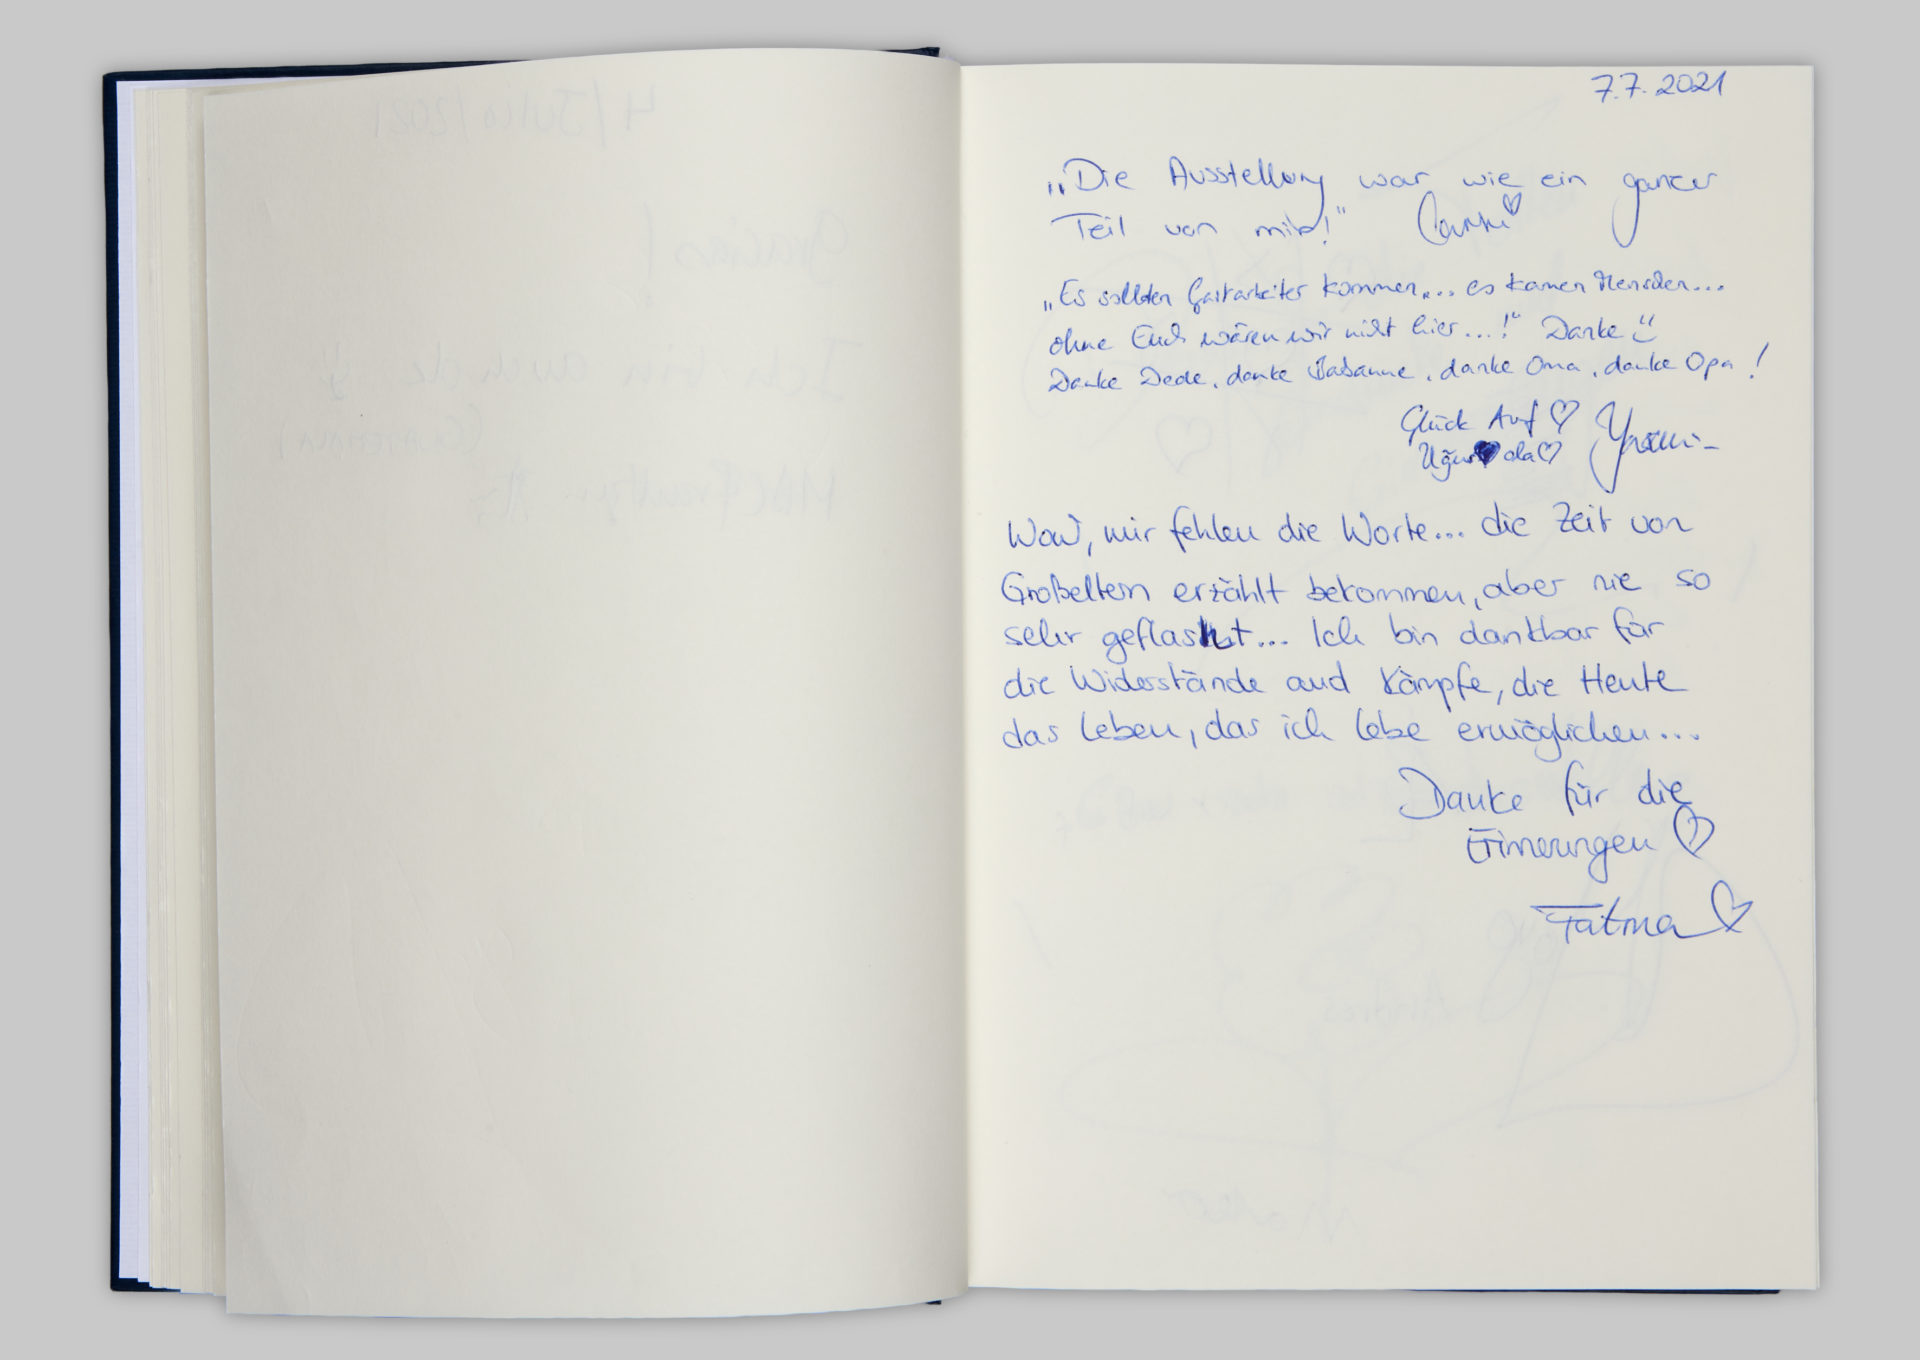 7.7.2021
„Die Ausstellung war wie ein ganzer
Teil von mir!"
„Es sollten Gastarbeiter kommen,... es kamen Menschen...
ohne Euch wären wir nicht hier...!" Danke
Danke Dede, danke Babanne, danke Oma, danke Opa!
Glück Auf ♡
Uğur ♥ ola ♡
Wow, mir fehlen die Worte... die Zeit von
Großeltern erzählt bekommen, aber nie so
sehr geflasht... Ich bin dankbar für
die Widerstände und Kämpfe, die Heute
das Leben, das ich lebe ermöglichen...
Danke für die
Erinnerungen ♡
Fatma ♡
4/Julio/2021
Gracias!
Ich bin auch da